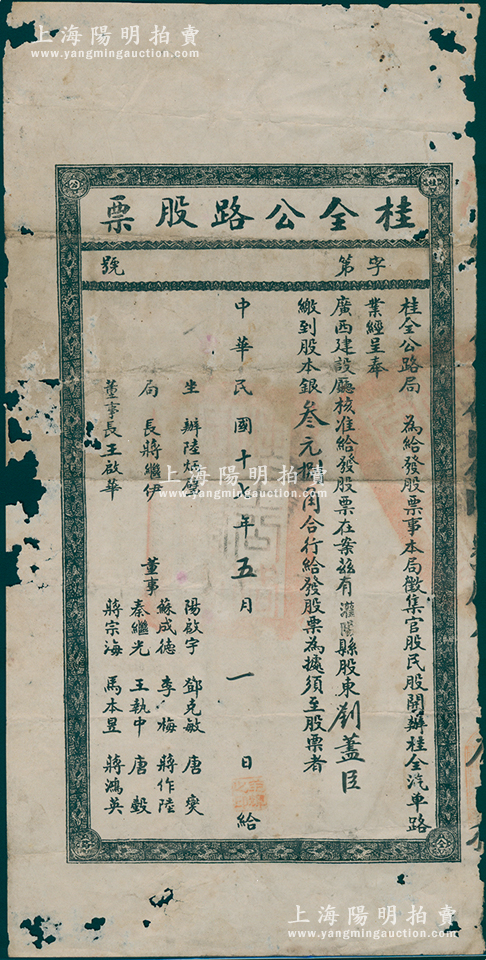 上海陽明拍賣
www.yangmingauction.com
桂全公路股票
字第號
桂全公路局 為給發股票事本局徵集官股民股開辦桂全汽車路
業經呈奉
廣西建設廳核准給發股票在案茲有灌陽縣股東劉藎臣
繳到股本銀叁元捌角合行給發股票為據須至股票者
中華民國十七年五月一日給
坐辦陸炳
局長蔣繼伊
董事長王啟華
董事
陽啟宇 鄧克敏 唐燮
蘇成德 李梅 蔣作陸
秦繼光 王執中 唐毅
蔣宗海 馬本昱 蔣鴻英
上海陽明拍賣
www.yangmingauction.com
上海陽明拍賣
www.yangmingauction.com